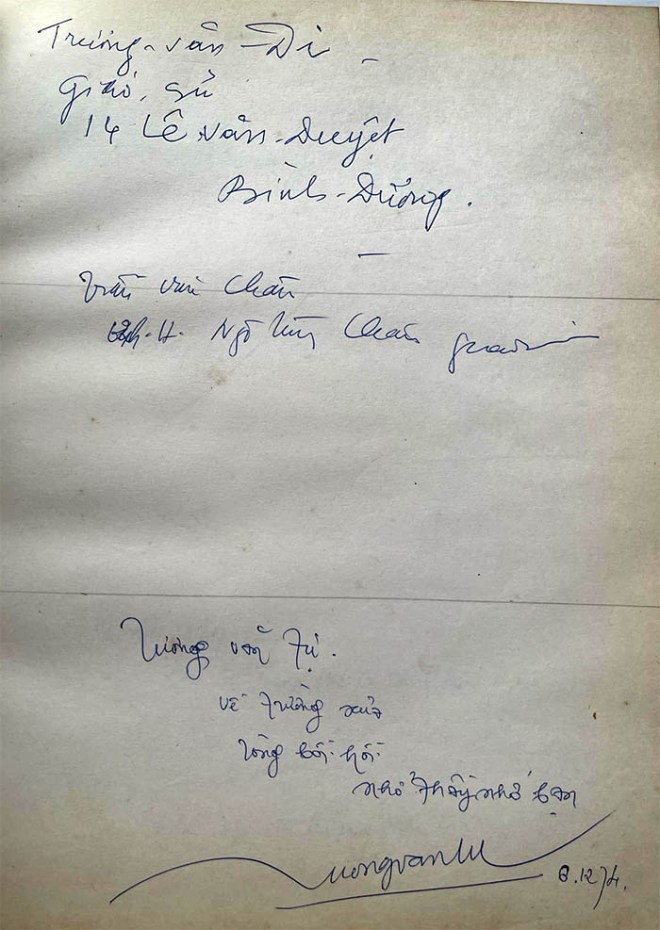 Trương-văn-Di -
Giáo, sư
14 Lê văn-Duyệt
Bình-Dương.
—
Trần văn Chấn
Ngô Tùng Châu
Lương văn Tự.
về trường xưa
lòng bồi hồi
nhớ thầy nhớ bạn
Luongvantu 8.12/74.